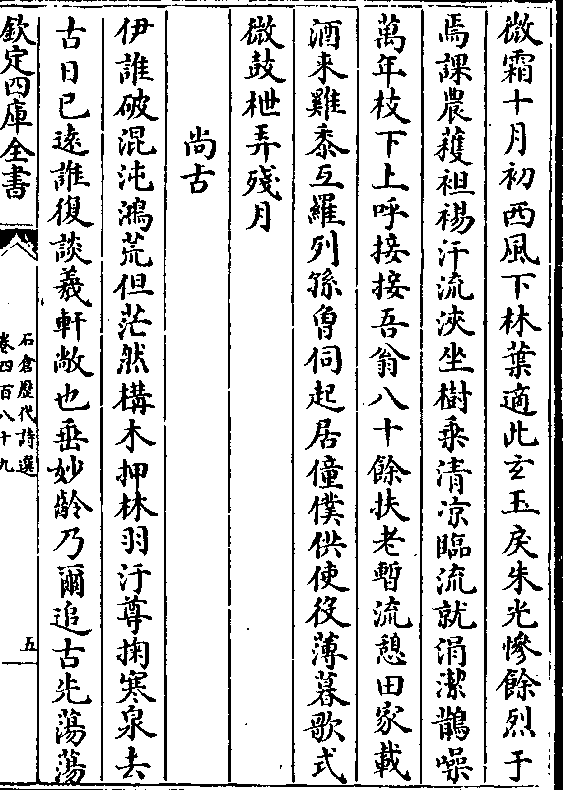 微霜十月初西風下林葉適此玄玉戾朱光慘餘烈于
焉課農穫袒裼汗流浹坐樹乘清凉臨流就涓潔鵲噪
萬年枝下上呼接接吾翁八十餘扶老暫流憩田家載
酒来雞黍互羅列孫曾伺起居僮僕供使役薄暮歌式
微鼓枻弄殘月
尚古
伊誰破混沌鴻荒但茫然構木押林羽汙尊掬寒泉去
古日已遠誰復談羲軒敞也垂妙齡乃爾追古先蕩蕩
欽定四庫全書
石倉歷代詩選
卷四百八十九
五